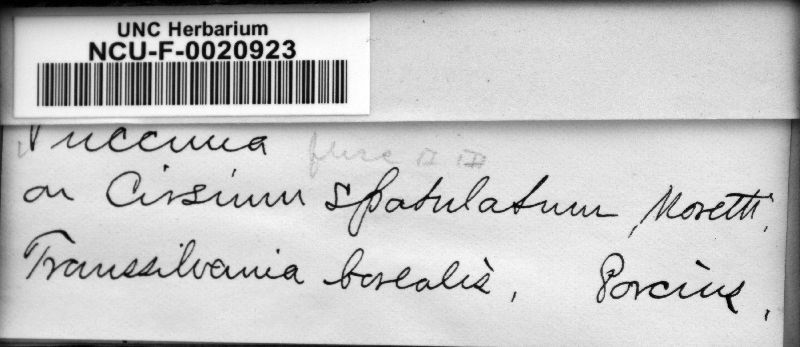 UNC Herbarium
NCU-F-0020923
Puccinia
on Cirsium spatulatum, Moretti,
Transsilvania borealis, Porcius,